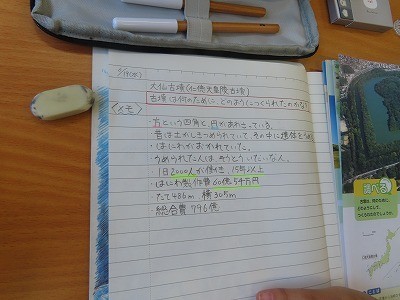 大仙古墳(仁徳天皇陵古墳)
古墳は何のために、どのようにつくられたのかな
〈メモ〉
・方という四角と、円があわさっている。
・昔は土がしきつめられていて、その中に遺体を
・はにわがおかれていた。
・うめられた人は、そうとういだいな人。
1日2000人が働き 15年以上
・はにわ製作費60億5千万円
たて486m 横305m
・総合費796億
調べる